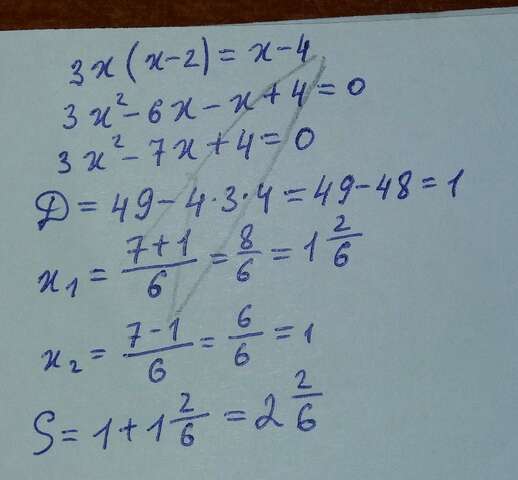 3x(x-2)=x-4
3x²-6x-x+4=0
3x²-7x+4=0
D=49-4·3·4=49-48=1
x₁=\frac{7+1}{6}=\frac{8}{6}=1\frac{2}{6}
x₂=\frac{7-1}{6}=\frac{6}{6}=1
S=1+1\frac{2}{6}=2\frac{2}{6}